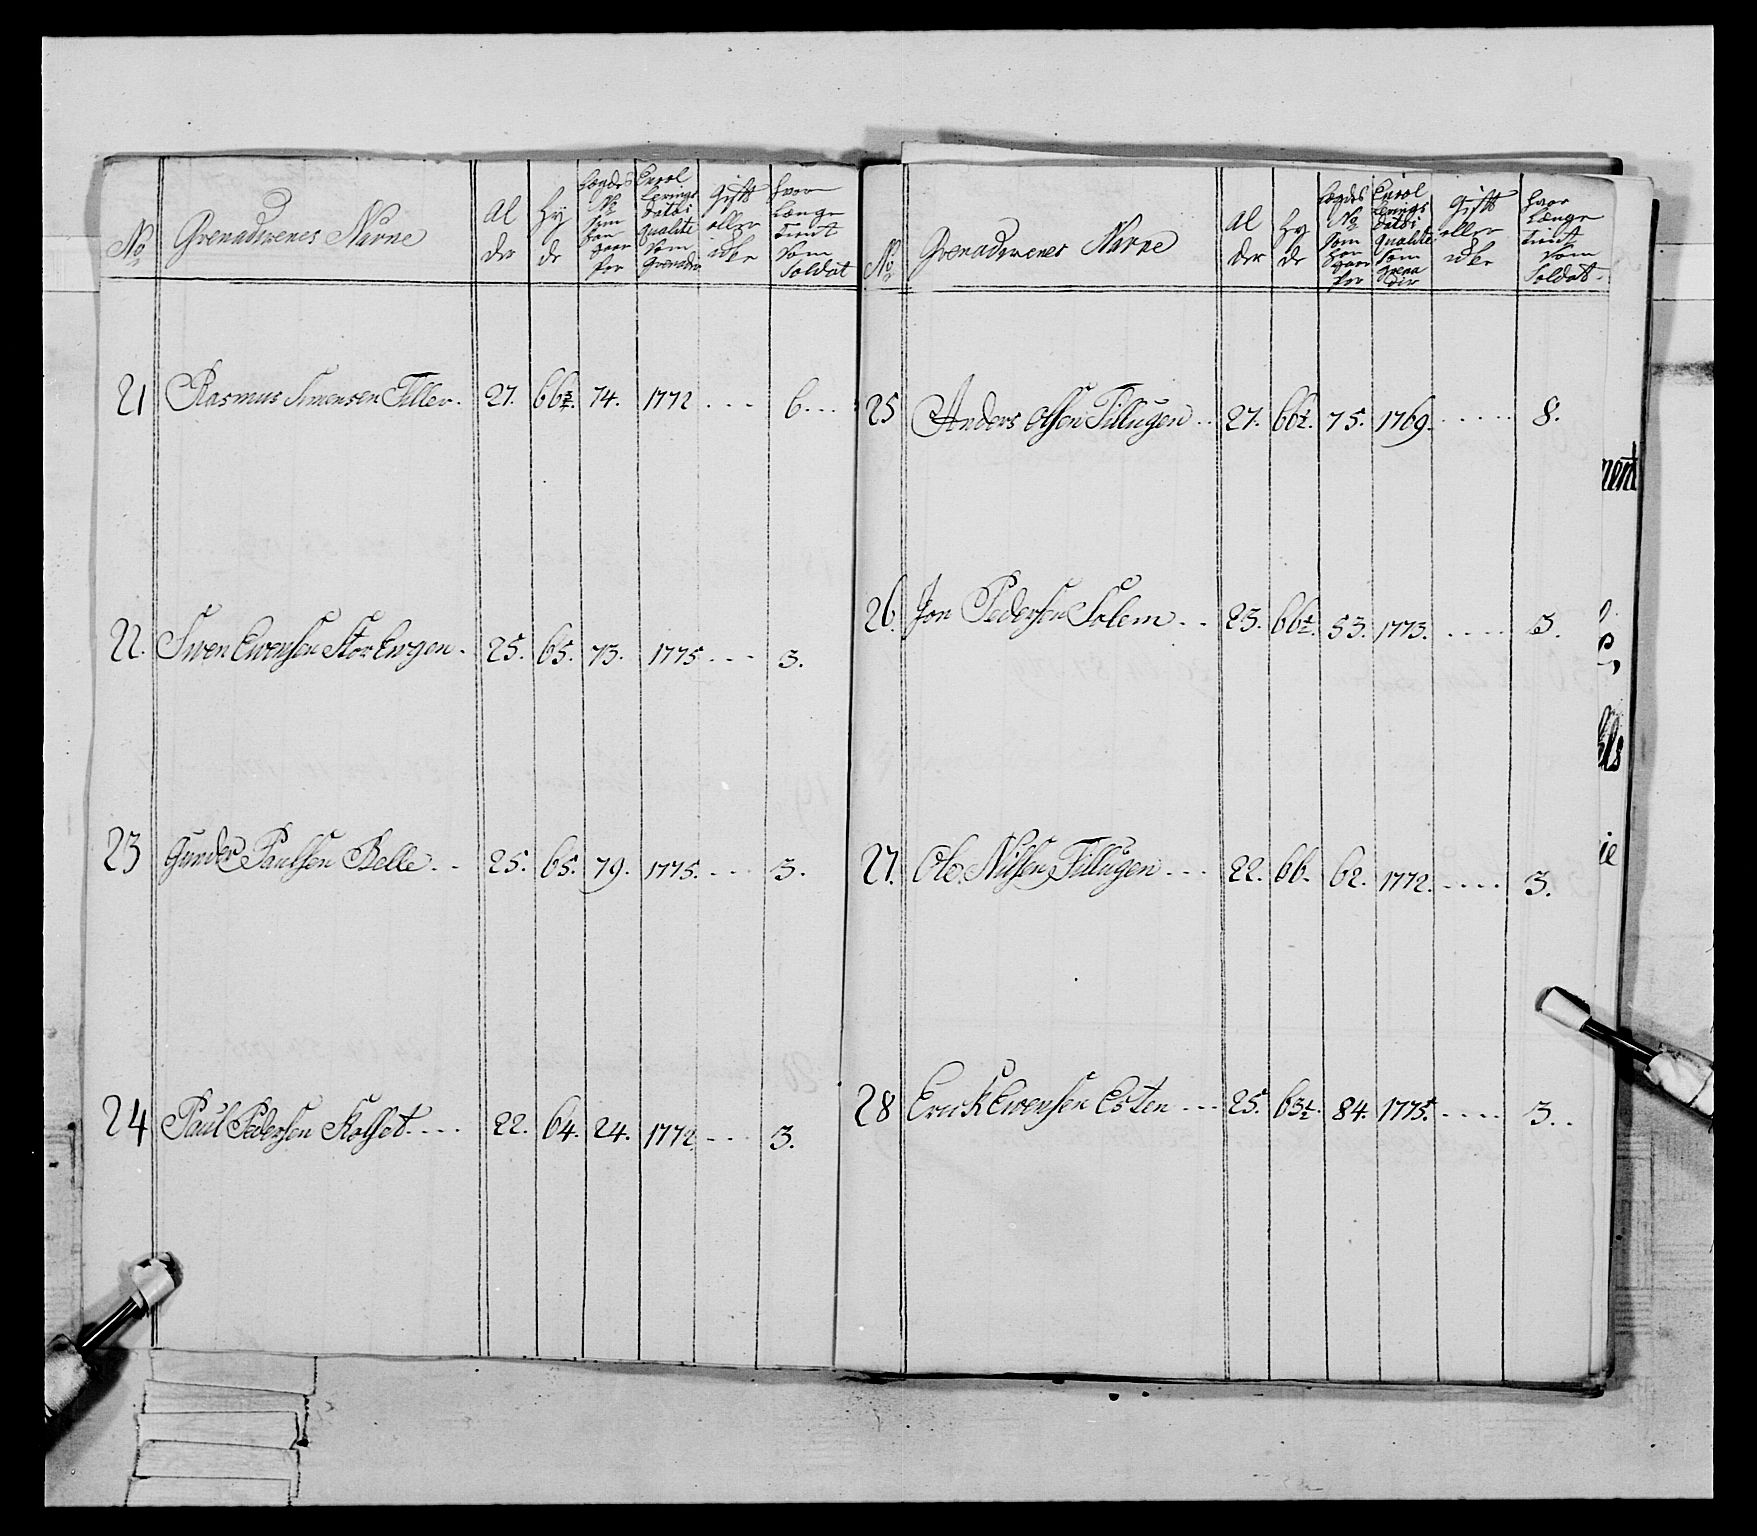 No Grenaderenes Navne Al der Hy de Lægdes No som han staar for Enrol lerings Datoi Qualité som Grenadir Gift eller ikke Hvor Længe Tient som Soldat
21 Rasmus Simensen Tiller. 27. 66¾. 74. 1772 ... 6...
22. Swen Ewensen Stor Ewgen. 25. 65. 73. 1775 ... 3.
23 Gunder Paulsen Belle.. 25. 65. 79. 1775. ... 3.
24 Paul Pedersen Kolset.... 22. 64. 24. 1772. ... 3.
No Grenaderenes Navne Al der Hy de Lægdes No som han staar for Enrol lerings Datoi Qualité som Grenadir Gift eller ikke Hvor Længe Tient som Soldat.
25 Anders Olsen Tillugen.. 27. 66½. 75. 1769. ..... 8.
26. Jon Pedersen Solem.. 23. 66½. 53. 1773. .... 3.
27. Ole Nilsen Tillugen... 22. 66. 62. 1772. .... 3.
28 Erick Ewensen Esten... 25. 63½. 84. 1775. .... 3..